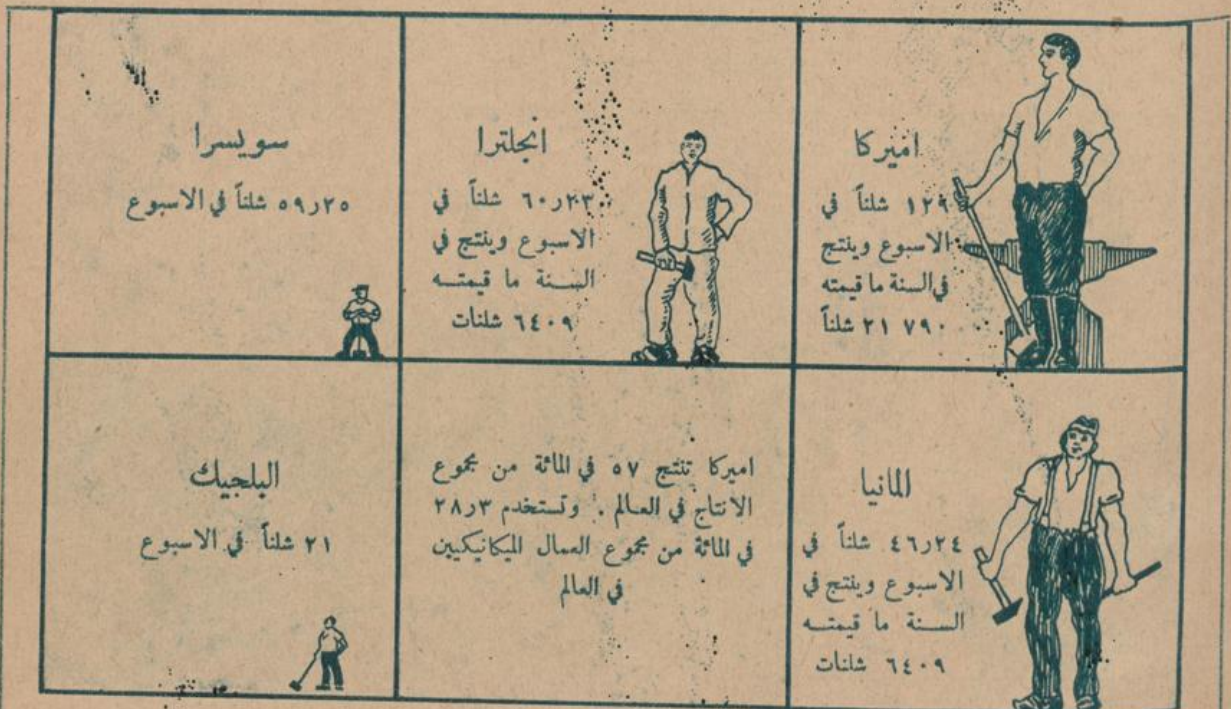 اميركا
١٢٩ شلناً في
الاسبوع وينتج
في السنة ما قيمته
٢١ ٧٩٠ شلناً
انجلترا
٦٠٫٢٣ شلناً في
الاسبوع وينتج في
السنة ما قيمتـه
٦٤٠٩ شلنات
سويسرا
٥٩٫٢٥ شلناً في الاسبوع
المانيا
٤٦٫٢٤ شلناً في
الاسبوع وينتج في
السـنة ما قيمتـه
٦٤٠٩ شلنات
اميركا تنتج ٥٧ في المائة من مجموع
الانتاج في العـالم . وتستخدم ٢٨٫٣
في المائة من مجموع العمال الميكانيكيين
في العالم
البلجيك
٢١ شلناً في الاسبوع